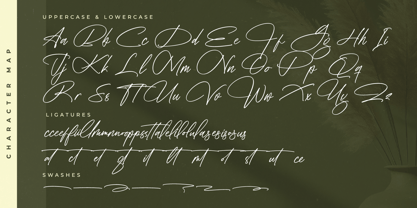 CHARACTER MAP
UPPERCASE & LOWERCASE
Aa Bb Cc Dd Ee Ff Gg Hh Ii
Jj Kk Ll Mm Nn Oo Pp Qq
Rr Ss Tt Uu Vv Ww Xx Yy Zz
LIGATURES
at ct et gt it lt mt ot st ut ce
SWASHES